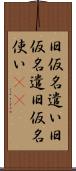 旧仮名遣い旧
仮名遣旧仮名
使い